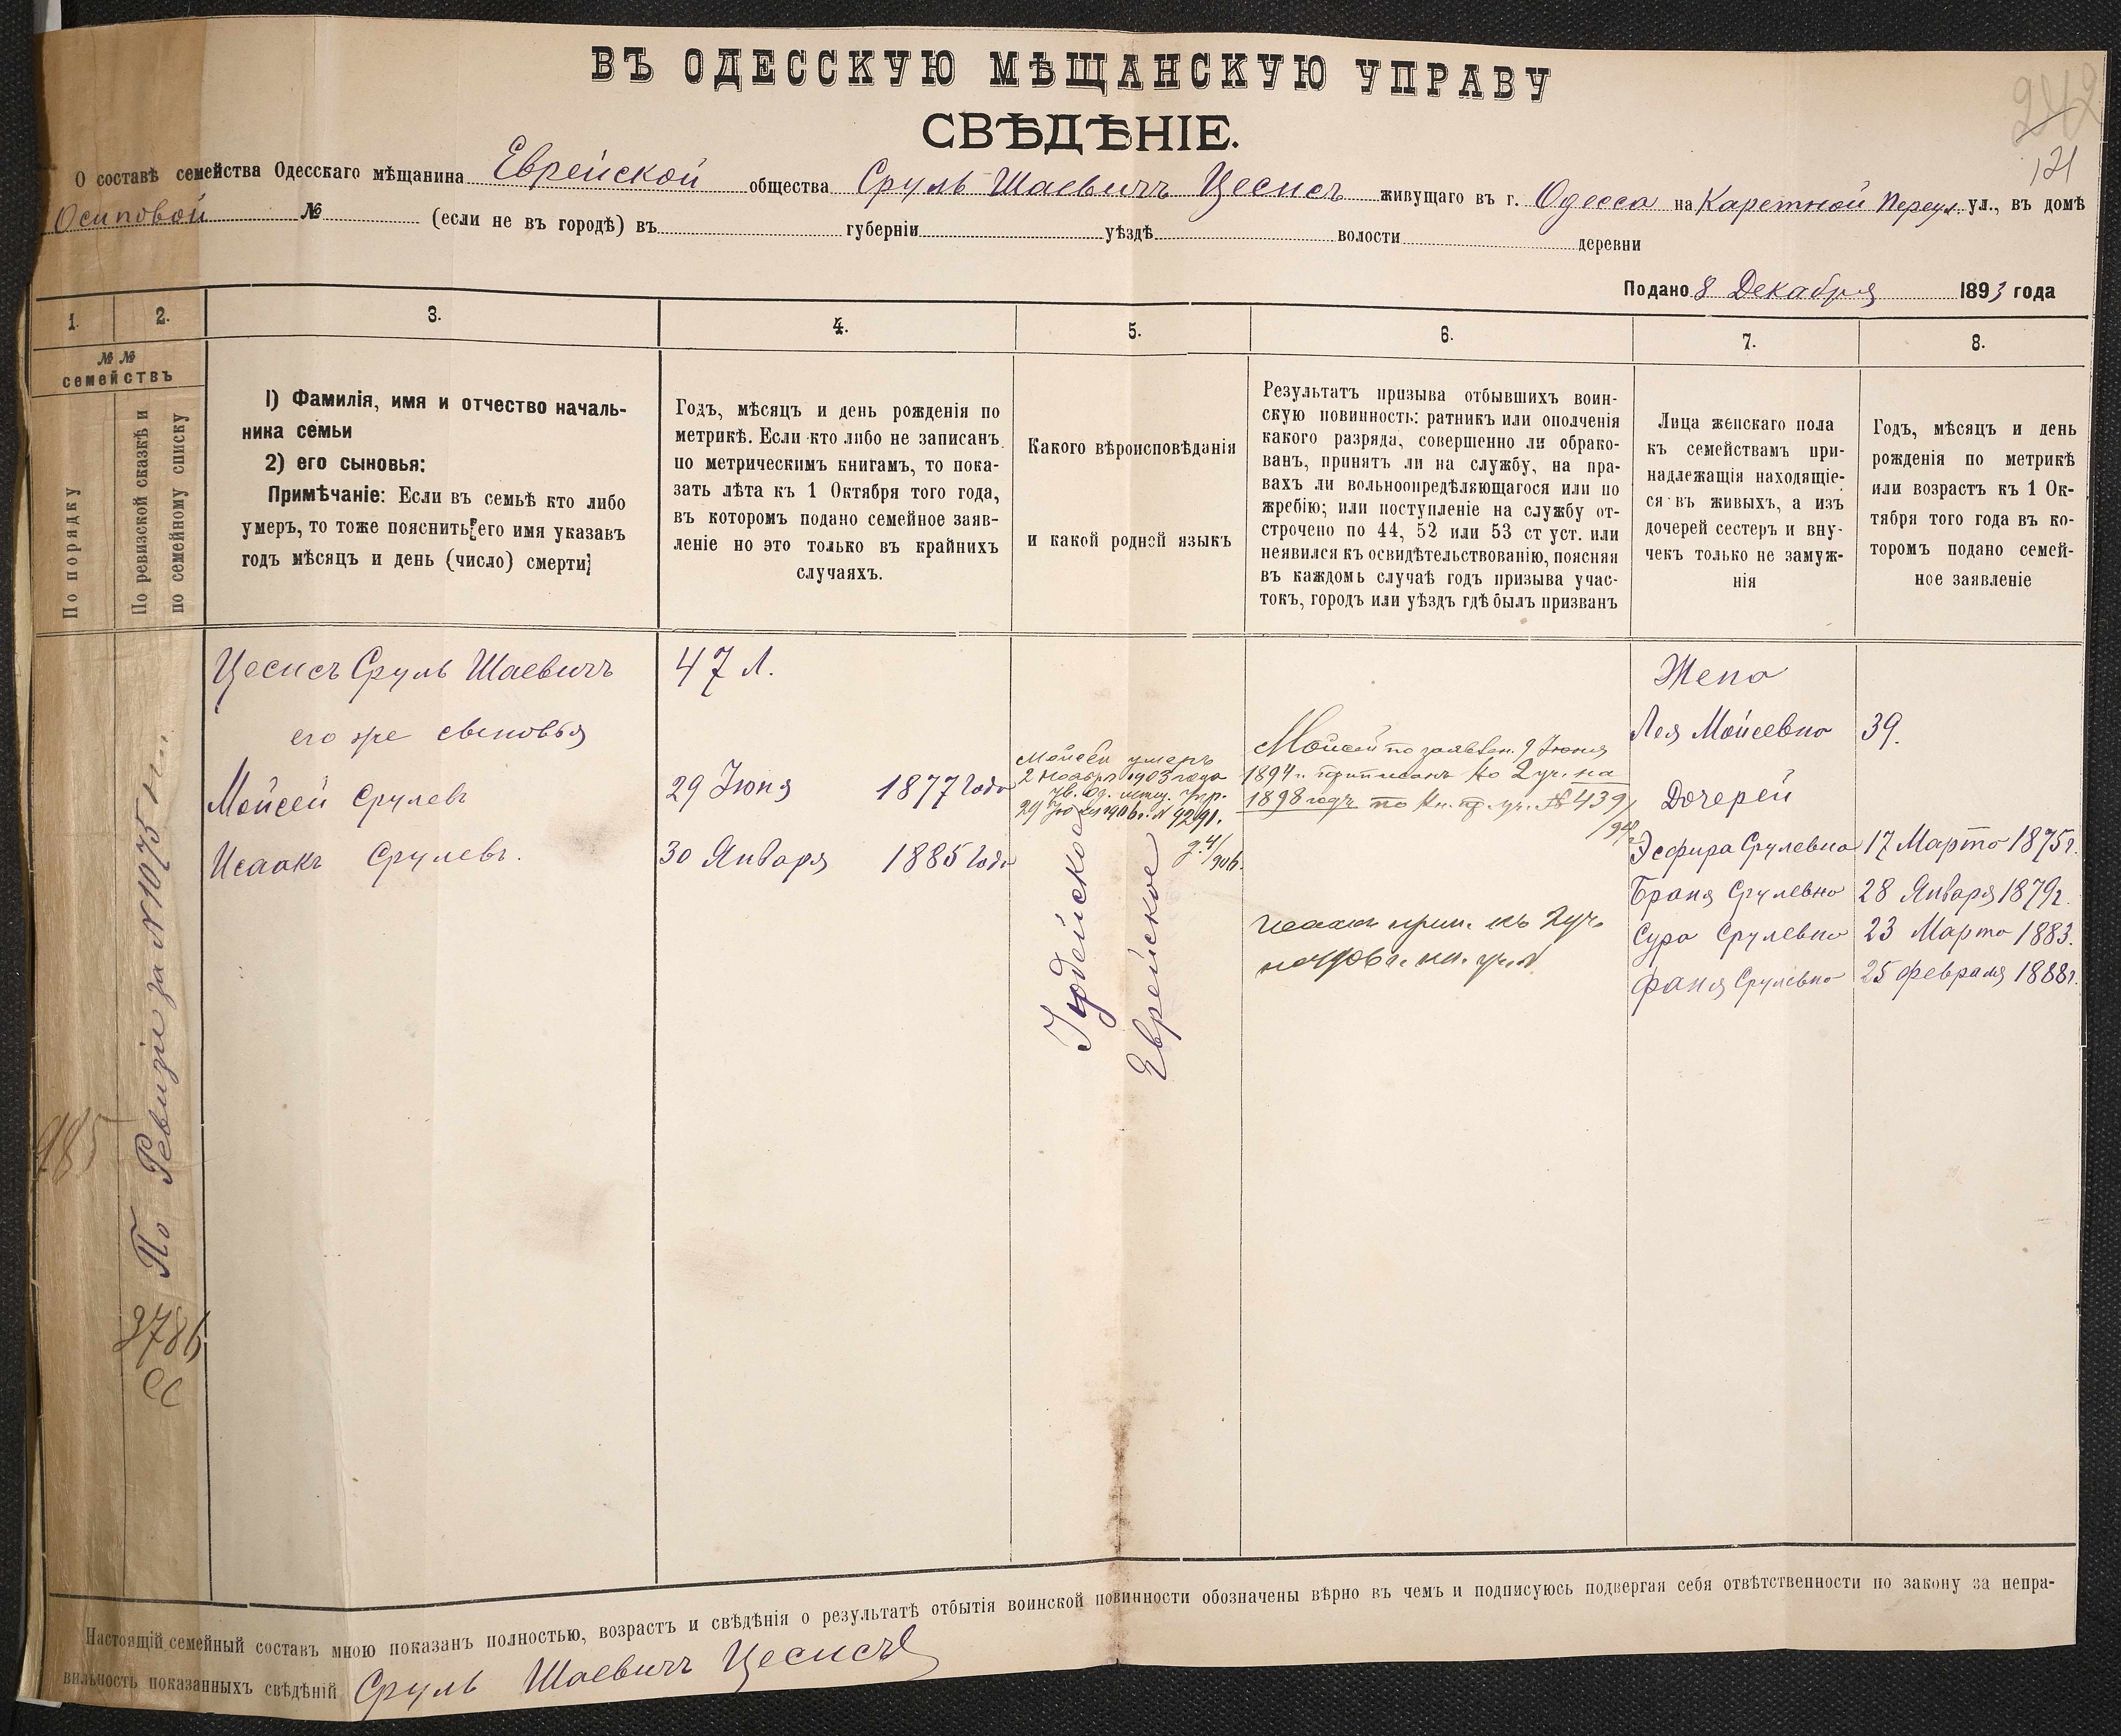 242
121
ВЪ ОДЕССКУЮ МѢЩАНСКУЮ УПРАВУ
СВѢДѢНІЕ.
О составѣ семейства Одесскаго мѣщанина Еврейской общества Сруль Шаевичъ Цесисъ живущаго въ г. Одесса на Каретной Переул. ул., въ домѣ
Осиповой № (если не въ городѣ) въ губерніи уѣздѣ волости деревни
Подано 8 Декабря 1893 года
1. 2. 3. 4. 5. 6. 7. 8.
№ №
семействъ
По порядку
По ревизской сказкѣ и
по семейному списку
1) Фамилія, имя и отчество началь-
ника семьи
2) его сыновья:
Примѣчаніе: Если въ семьѣ кто либо
умеръ, то тоже пояснить его имя указавъ
годъ мѣсяцъ и день (число) смерти
Годъ, мѣсяцъ и день рожденія по
метрикѣ. Если кто либо не записанъ
по метрическимъ книгамъ, то пока-
зать лѣта къ 1 Октября того года,
въ которомъ подано семейное заяв-
леніе но это только въ крайнихъ
случаяхъ.
Какого вѣроисповѣданія
и какой родной языкъ
Результатъ призыва отбывшихъ воин-
скую повинность: ратникъ или ополченія
какого разряда, совершенно ли обрако-
ванъ, принятъ ли на службу, на пра-
вахъ ли вольноопредѣляющагося или по
жребію; или поступленіе на службу от-
строчено по 44, 52 или 53 ст уст. или
неявился къ освидѣтельствованію, поясняя
въ каждомъ случаѣ годъ призыва учас-
токъ, городъ или уѣздъ гдѣ былъ призванъ
Лица женскаго пола
къ семействамъ при-
надлежащія находящіе-
ся въ живыхъ, а изъ
дочерей сестеръ и вну-
чекъ только не замуж-
нія
Годъ, мѣсяцъ и день
рожденія по метрикѣ
или возрастъ къ 1 Ок-
тября того года въ ко-
торомъ подано семей-
ное заявленіе
985
По Ревизіи за № 1075
3786
Цесисъ Сруль Шаевичъ 47 л.
его же сыновья
Мойсей Срулевъ 29 Іюня 1877 года
Исаакъ Срулевъ. 30 Января 1885 года
Мойсей умеръ
2 Ноября 1903 года
ув. Од. мещ. Упр.
29 1906 г. № 9291.
Іудейское
Еврейское
Мойсей по заявлен. 9 Іюня
1894 г. приписанъ ко 2 уч. на
1898 годъ по кн. пр. уч. № 439/94
Исаакъ прип. къ 2 уч.
на 1906 г. кн. уч. №
Жена
Лея Мойсеевна 39.
Дочерей
Эсфира Срулевна 17 Марта 1875 г.
Браня Срулевна 28 Января 1879 г.
Сура Срулевна 23 Марта 1883.
Фаня Срулевна 25 Февраля 1888 г.
Настоящій семейный составъ мною показанъ полностью, возрастъ и свѣдѣнія о результатѣ отбытія воинской повинности обозначены вѣрно въ чемъ и подписуюсь подвергая себя отвѣтственности по закону за непра-
вильность показанныхъ свѣдѣній Сруль Шаевичъ Цесисъ